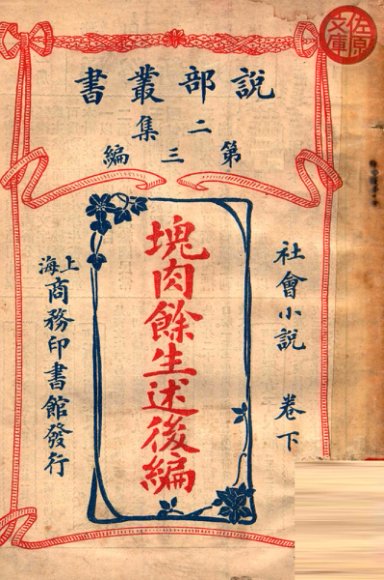 說部叢書
二集
第三編
社會小說 卷下
塊肉餘生述後編
上海
商務印書館發行
佐原文庫